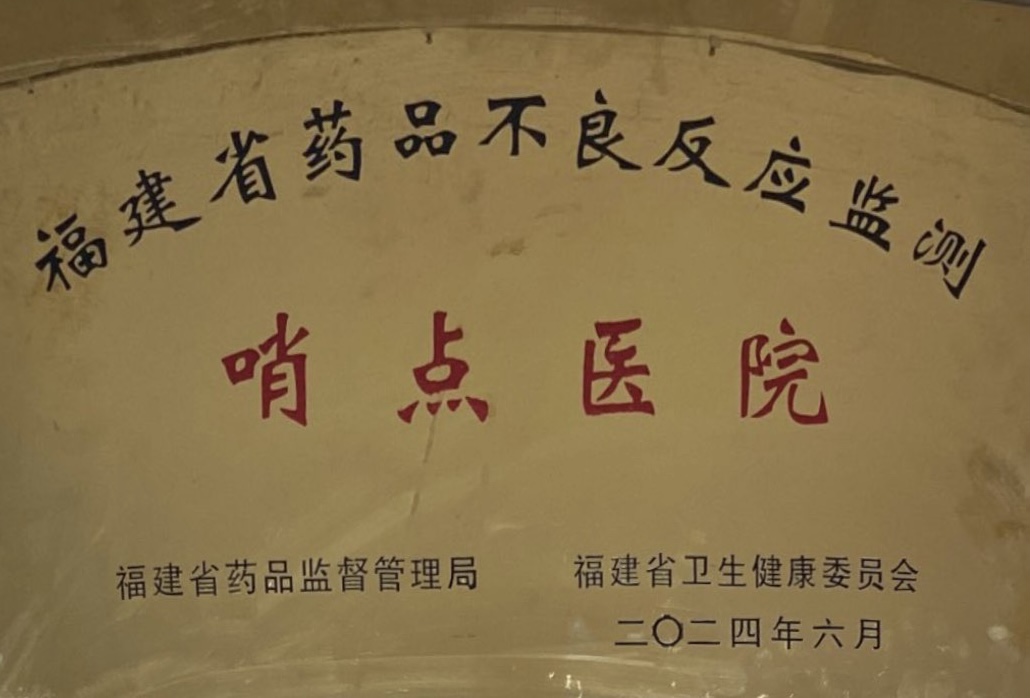 福建省药品不良反应监测
哨点医院
福建省药品监督管理局
福建省卫生健康委员会
二〇二四年六月